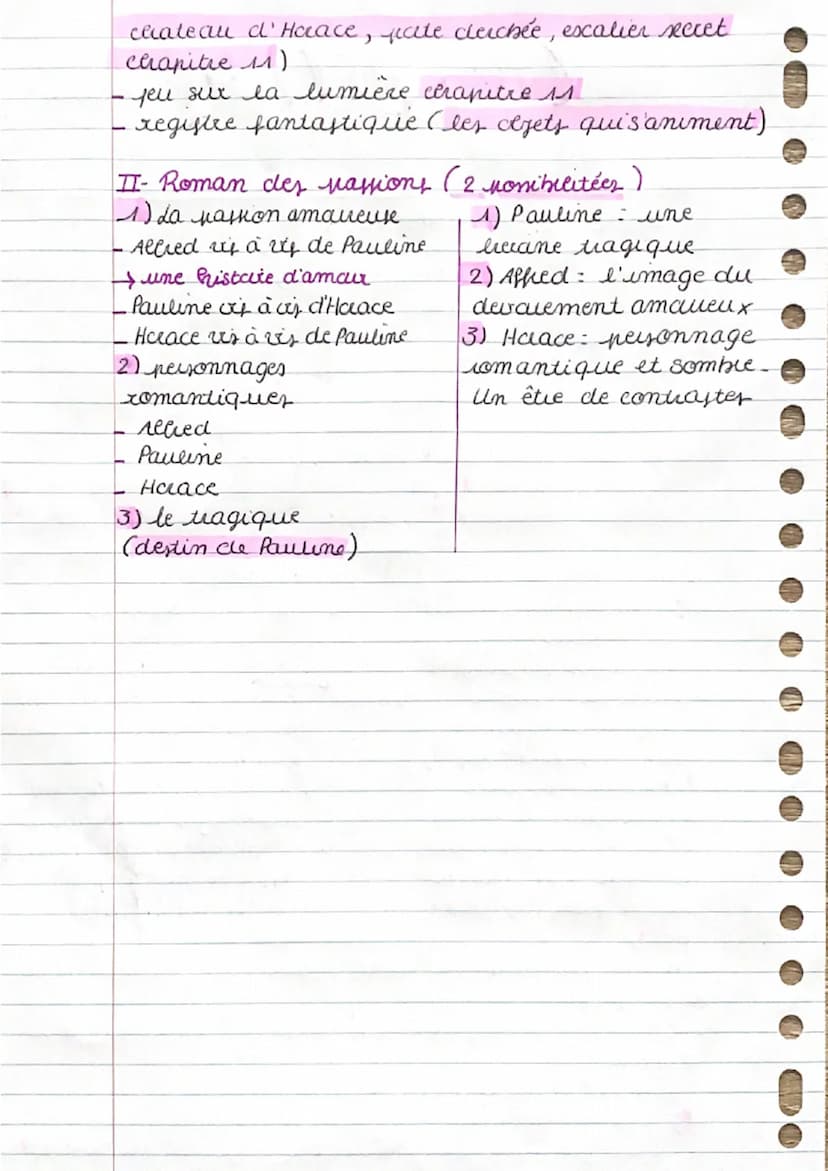 château d'Horace, porte dérobée, escalier secret
chapitre 11)
- jeu sur la lumière chapitre 11
- registre fantastique (les objets qui s'animent)
II- Roman des passions (2 possibilitées)
1) La passion amoureuse
- Alfred vis à vis de Pauline
→ une histoire d'amour
- Pauline vis à vis d'Horace
- Horace vis à vis de Pauline
2) personnages
romantiques
- Alfred
- Pauline
- Horace
3) le tragique
(destin de Pauline)
1) Pauline : une
héroïne tragique
2) Alfred : l'image du
devouement amoureux
3) Horace : personnage
romantique et sombre -
Un être de contrastes